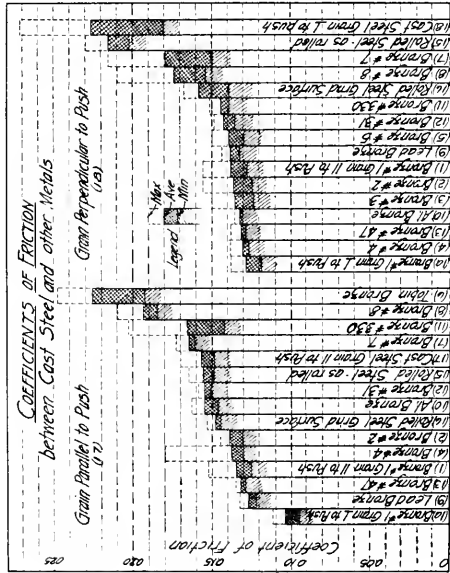 COEFFICIENTS OF FRICTION
between Cast Steel and other Metals
Grain Parallel to Push
(17)
Grain Perpendicular to Push
(18)
Legend
Max
Ave
Min
Coefficient of Friction
0.25
0.20
0.15
0.10
0.05
(1a) Bronze #1 Grain ⊥ to Push
(9) Lead Bronze
(13) Bronze #47
(1) Bronze #1 Grain II to Push
(4) Bronze #4
(2) Bronze #2
(16) Rolled Steel Grnd Surface
(10) Al. Bronze
(12) Bronze #31
(15) Rolled Steel-as rolled
(17) Cast Steel Grain II to Push
(7) Bronze #7
(11) Bronze #330
(8) Bronze #8
(6) Tobin Bronze
(1a) Bronze #1 Grain ⊥ to Push
(4) Bronze #4
(13) Bronze #47
(10) Al. Bronze
(3) Bronze #3
(2) Bronze #2
(1) Bronze #1 Grain II to Push
(9) Lead Bronze
(5) Bronze #5
(12) Bronze #31
(11) Bronze #330
(16) Rolled Steel Grnd Surface
(8) Bronze #8
(7) Bronze #7
(15) Rolled Steel-as rolled
(18) Cast Steel Grain ⊥ to push